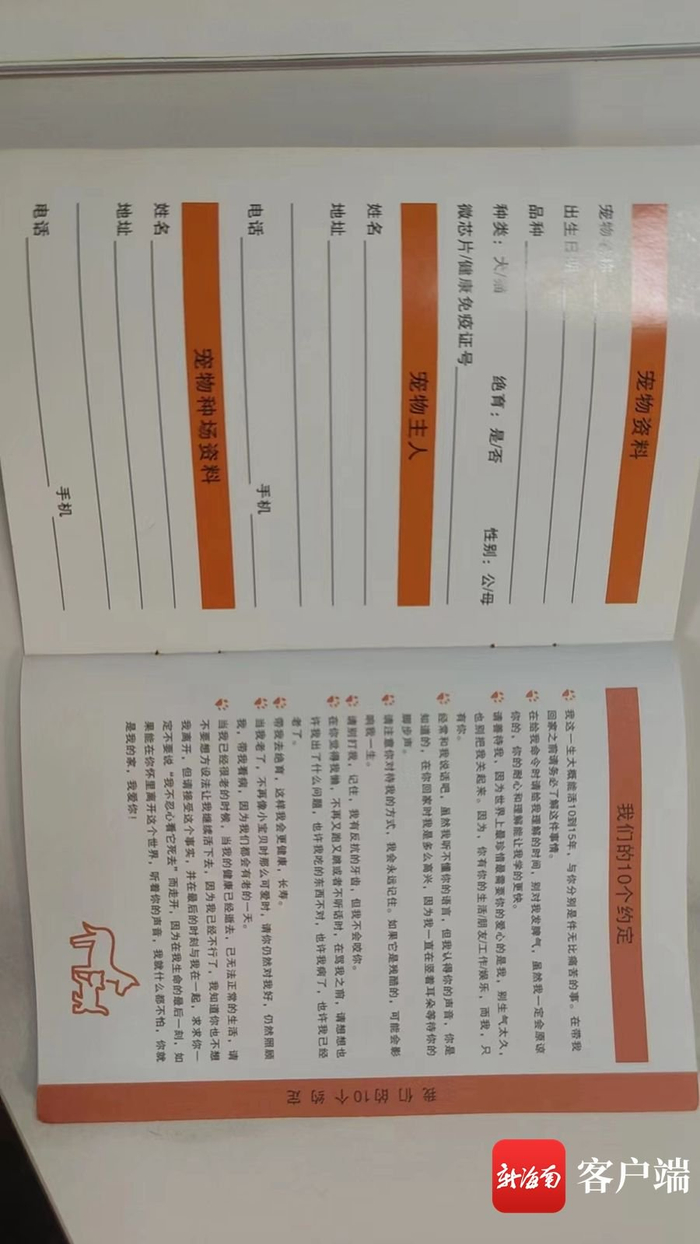 宠物资料
宠物
出生日
品种
种类：犬/猫 绝育：是/否 性别：公/母
微芯片/健康免疫证号
宠物主人
姓名
地址
电话 手机
宠物种场资料
姓名
地址
电话 手机
我们的10个约定
我这一生大概能活10到15年，与你分别是件无比痛苦的事。在带我
回家之前请务必了解这件事情。
在给我命令时请给我理解的时间，别对我发脾气，虽然我一定会原谅
你的，你的耐心和理解能让我学的更快。
请善待我，因为世界上最珍惜最需要你的爱心的是我，别生气太久，
也别把我关起来。因为，你有你的生活/朋友/工作/娱乐，而我，只
有你。
经常和我说话吧，虽然我听不懂你的语言，但我认得你的声音，你是
知道的，在你回家时我是多么高兴，因为我一直在竖着耳朵等待你的
脚步声。
请注意你对待我的方式，我会永远记住。如果它是残酷的，可能会影
响我一生。
请别打我，记住，我有反抗的牙齿，但我不会咬你。
在你觉得我懒，不再又跑又跳或者不听话时，在骂我之前，请想想也
许我出了什么问题，也许我吃的东西不对，也许我病了，也许我已经
老了。
带我去绝育，这样我会更健康，长寿。
当我老了，不再像小宝贝时那么可爱时，请你仍然对我好，仍然照顾
我，带我看病，因为我们都会有老的一天。
当我已经很老的时候，当我的健康已经逝去，已无法正常的生活，请
不要想方设法让我继续活下去，因为我已经不行了，我知道你也不想
我离开，但请接受这个事实，并在最后的时刻与我在一起，求求你一
定不要说“我不忍心看它死去”而走开，因为在我生命的最后一刻，如
果能在你怀里离开这个世界，听着你的声音，我就什么都不怕，你就
是我的家，我爱你！
我们的10个约定
新海南
客户端